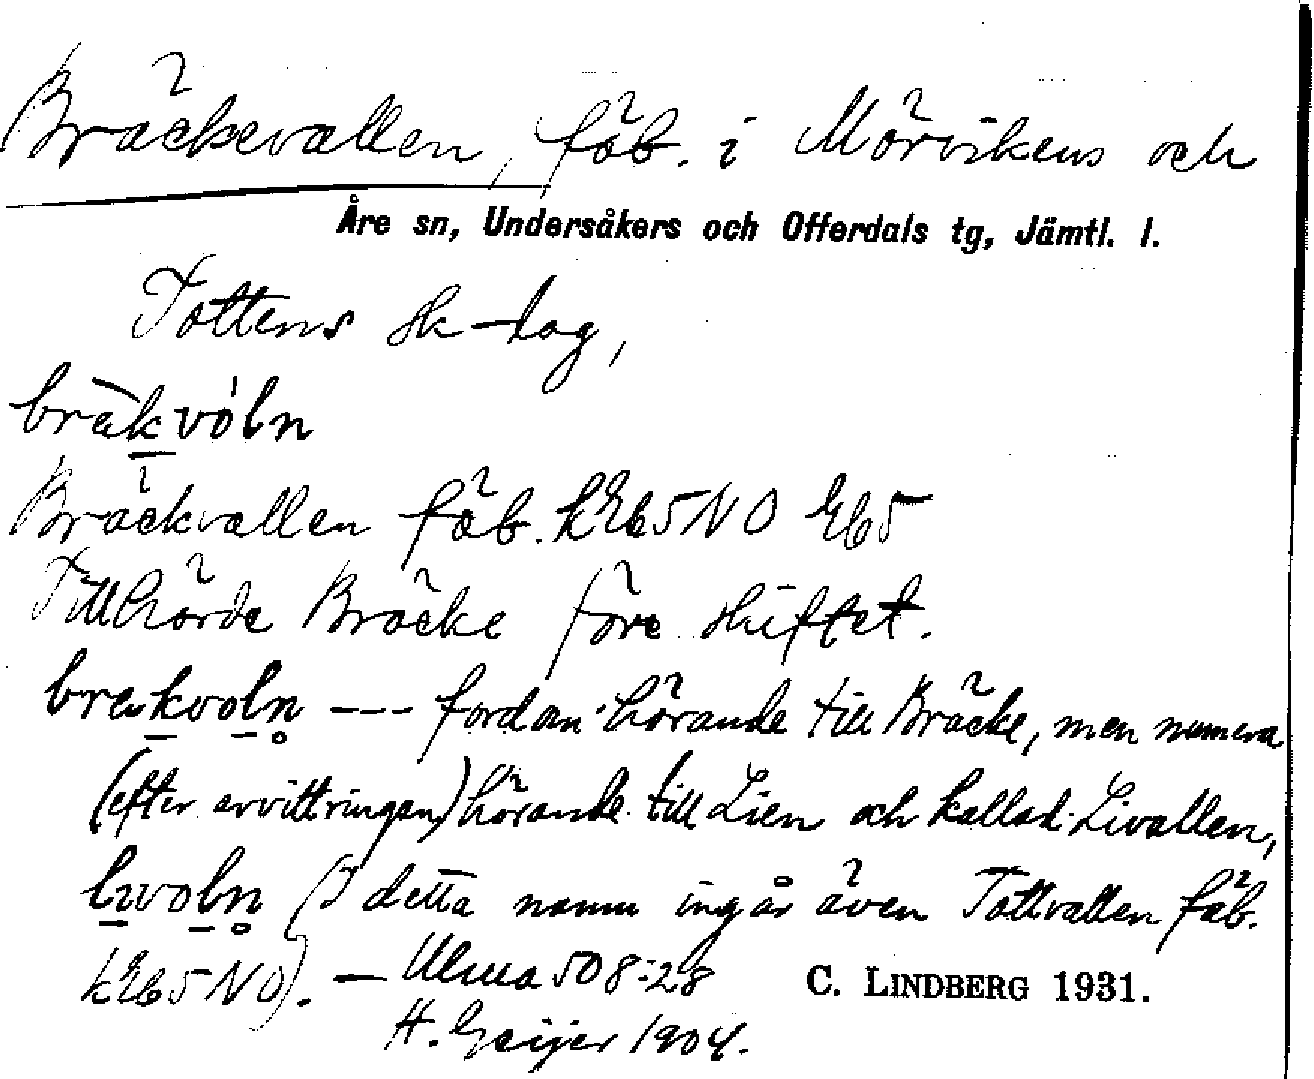 Bräckevallen, fäb. i Mörvikens och
Åre sn, Undersåkers och Offerdals tg, Jämtl. l.
Tottens sk-lag,
bräkvóln
Bräckvallen fäb. kEb5NO Eb5
Tillhörde Bräcke före skiftet.
brakvoln --- fordom hörande till Bräcke, men numera
(efter avvittringen) hörande till Lien och kallad Livallen,
livoln (I detta namn ingår även Tottvallen fäb.
kEb5NO). — Ulma 508:28 C. LINDBERG 1931.
H. Geijer 1904.